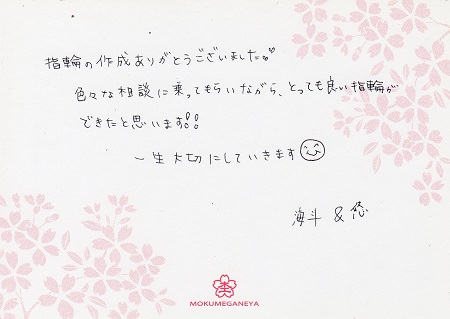 指輪の作成ありがとうございました!!
色々な相談に乗ってもらいながら、とっても良い指輪が
できたと思います!!
一生大切にしていきます
海斗 & 悠
MOKUMEGANEYA